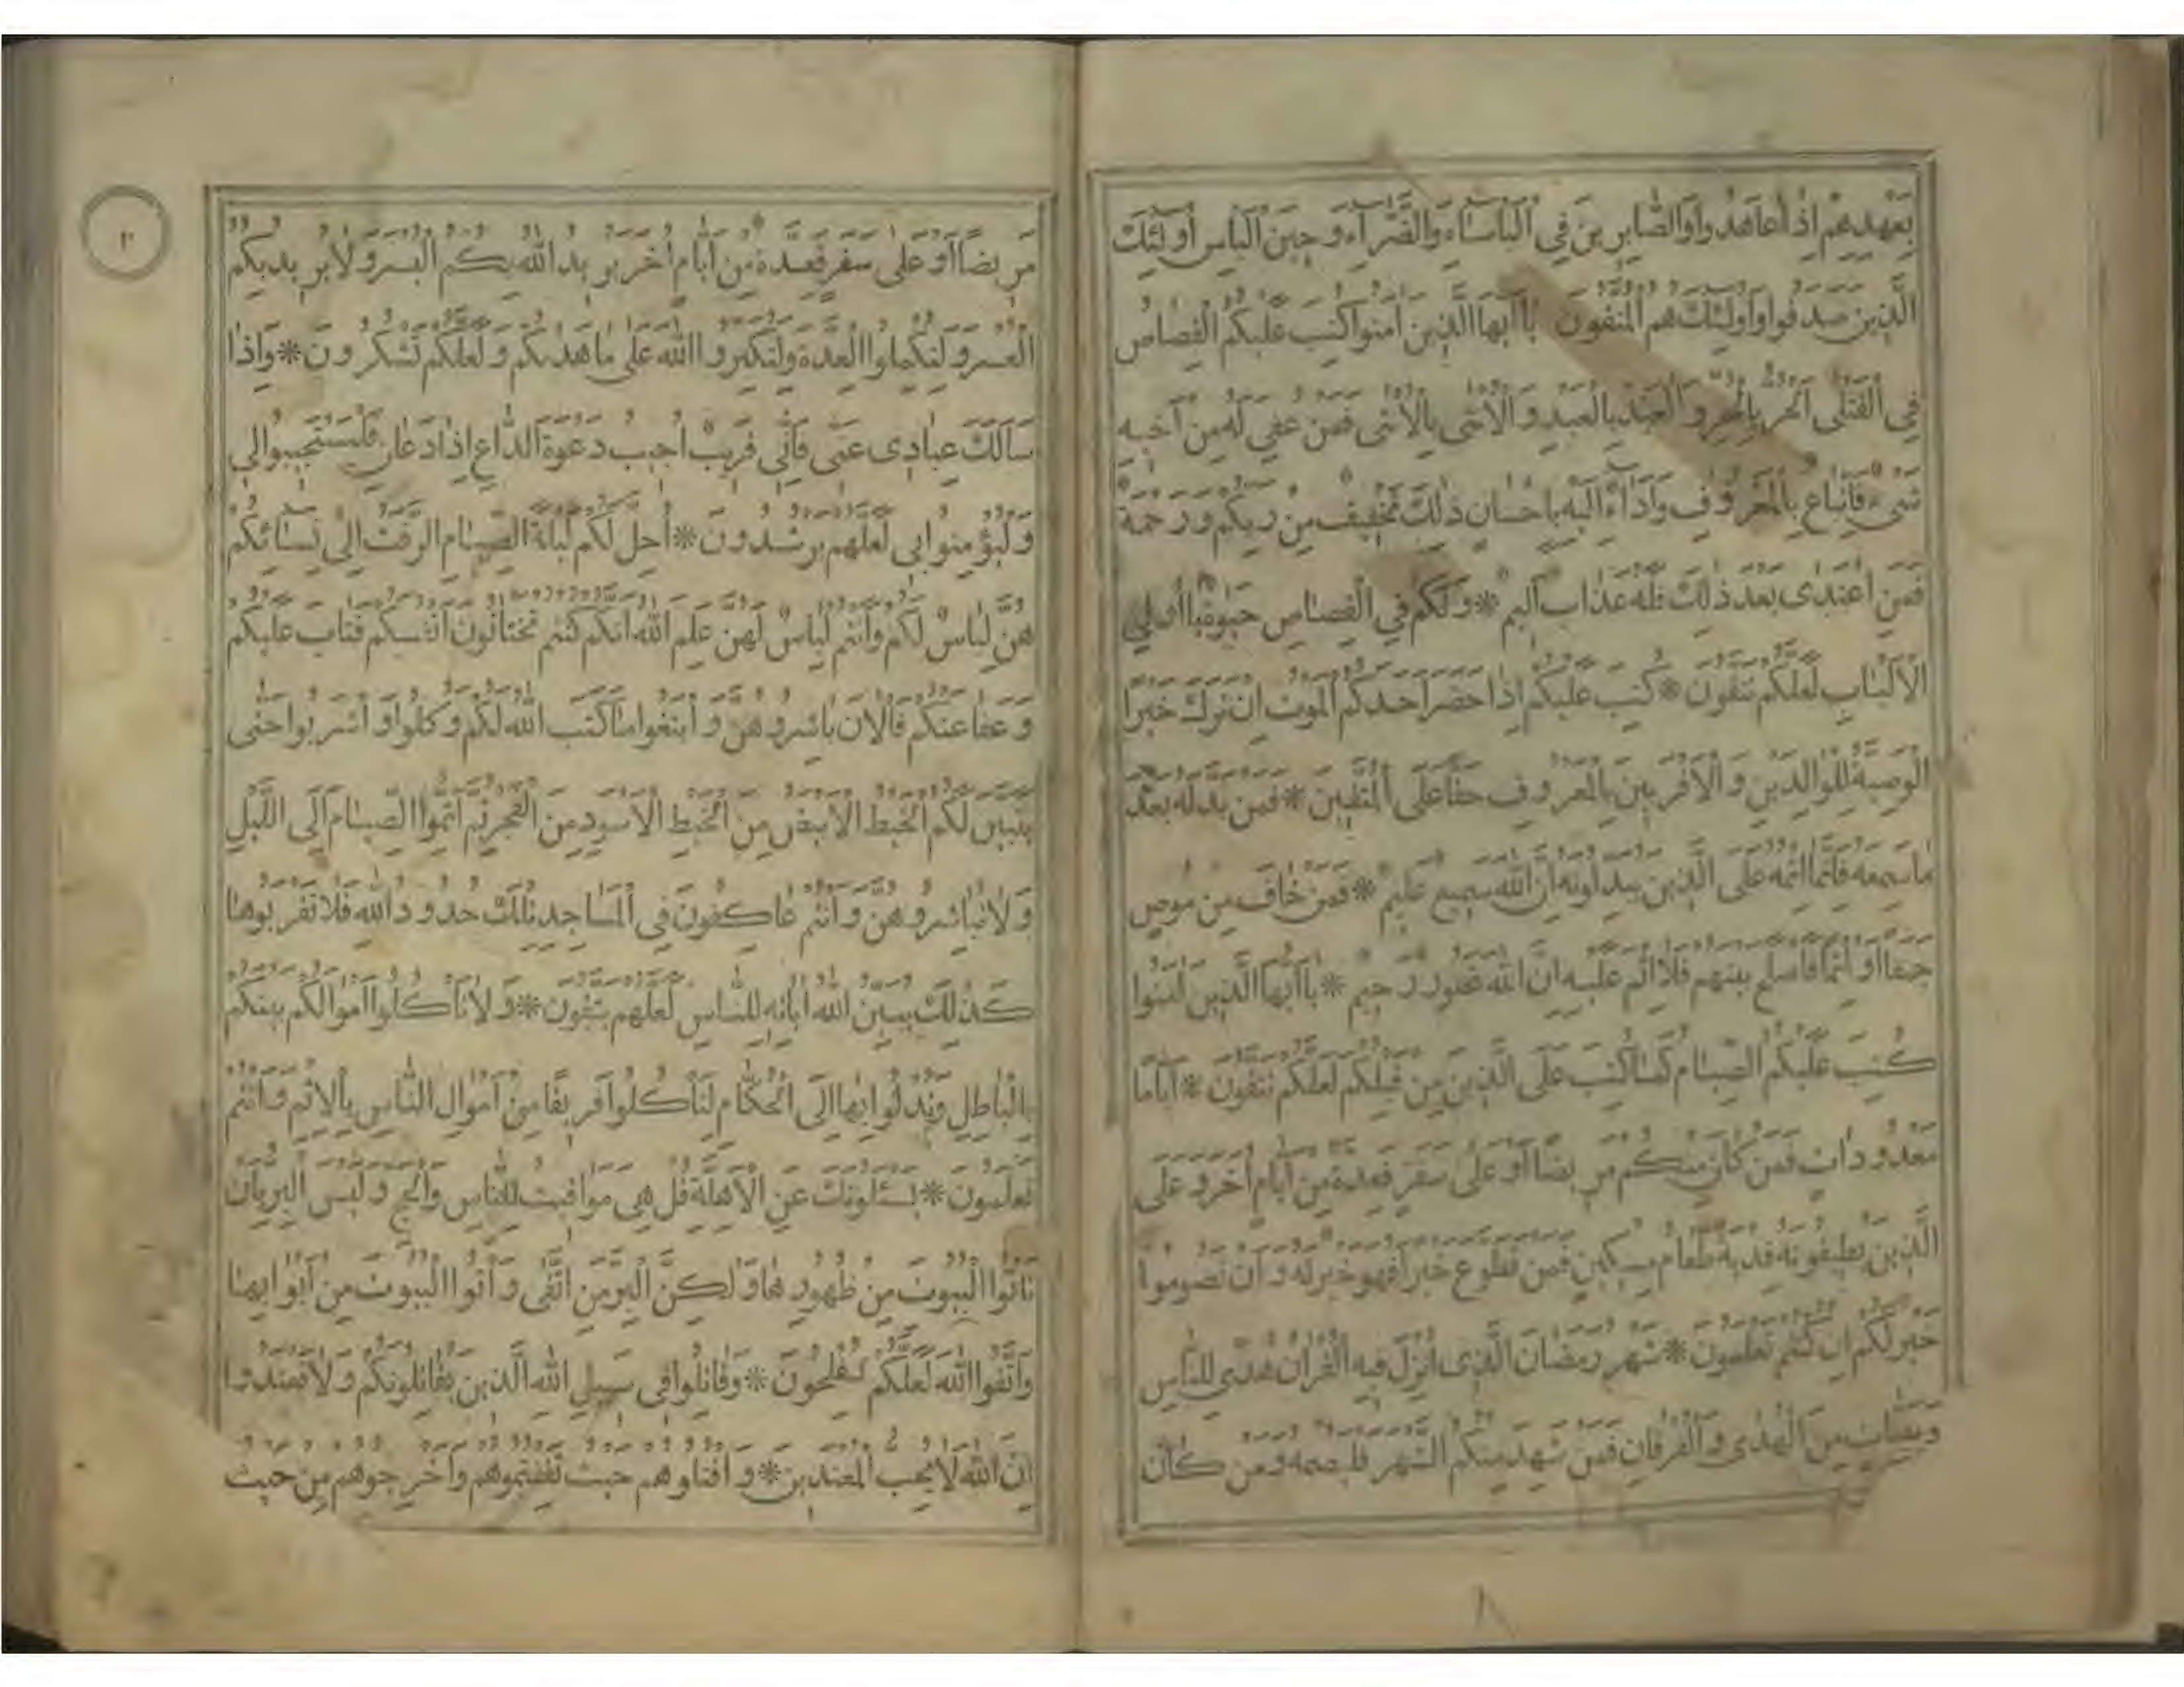 بِعَهْدِهِمْ إِذَا عَاهَدُوا وَالصَّابِرِينَ فِي الْبَأْسَاءِ وَالضَّرَّاءِ وَحِينَ الْبَأْسِ أُولَئِكَ
الَّذِينَ صَدَقُوا وَأُولَئِكَ هُمُ الْمُتَّقُونَ يَا أَيُّهَا الَّذِينَ آمَنُوا كُتِبَ عَلَيْكُمُ الْقِصَاصُ
فِي الْقَتْلَى الْحُرُّ بِالْحُرِّ وَالْعَبْدُ بِالْعَبْدِ وَالْأُنْثَى بِالْأُنْثَى فَمَنْ عُفِيَ لَهُ مِنْ أَخِيهِ
شَيْءٌ فَاتِّبَاعٌ بِالْمَعْرُوفِ وَأَدَاءٌ إِلَيْهِ بِإِحْسَانٍ ذَلِكَ تَخْفِيفٌ مِنْ رَبِّكُمْ وَرَحْمَةٌ
فَمَنِ اعْتَدَى بَعْدَ ذَلِكَ فَلَهُ عَذَابٌ أَلِيمٌ * وَلَكُمْ فِي الْقِصَاصِ حَيٰوةٌ يَا أُولِي
الْأَلْبَابِ لَعَلَّكُمْ تَتَّقُونَ * كُتِبَ عَلَيْكُمْ إِذَا حَضَرَ أَحَدَكُمُ الْمَوْتُ إِنْ تَرَكَ خَيْرًا
الْوَصِيَّةُ لِلْوَالِدَيْنِ وَالْأَقْرَبِينَ بِالْمَعْرُوفِ حَقًّا عَلَى الْمُتَّقِينَ * فَمَنْ بَدَّلَهُ بَعْدَ
مَا سَمِعَهُ فَإِنَّمَا إِثْمُهُ عَلَى الَّذِينَ يُبَدِّلُونَهُ إِنَّ اللَّهَ سَمِيعٌ عَلِيمٌ * فَمَنْ خَافَ مِنْ مُوصٍ
جَنَفًا أَوْ إِثْمًا فَأَصْلَحَ بَيْنَهُمْ فَلَا إِثْمَ عَلَيْهِ إِنَّ اللَّهَ غَفُورٌ رَحِيمٌ * يَا أَيُّهَا الَّذِينَ آمَنُوا
كُتِبَ عَلَيْكُمُ الصِّيَامُ كَمَا كُتِبَ عَلَى الَّذِينَ مِنْ قَبْلِكُمْ لَعَلَّكُمْ تَتَّقُونَ * أَيَّامًا
مَعْدُودَاتٍ فَمَنْ كَانَ مِنْكُمْ مَرِيضًا أَوْ عَلَى سَفَرٍ فَعِدَّةٌ مِنْ أَيَّامٍ أُخَرَ وَعَلَى
الَّذِينَ يُطِيقُونَهُ فِدْيَةٌ طَعَامُ مِسْكِينٍ فَمَنْ تَطَوَّعَ خَيْرًا فَهُوَ خَيْرٌ لَهُ وَأَنْ تَصُومُوا
خَيْرٌ لَكُمْ إِنْ كُنْتُمْ تَعْلَمُونَ * شَهْرُ رَمَضَانَ الَّذِي أُنْزِلَ فِيهِ الْقُرْآنُ هُدًى لِلنَّاسِ
وَبَيِّنَاتٍ مِنَ الْهُدَى وَالْفُرْقَانِ فَمَنْ شَهِدَ مِنْكُمُ الشَّهْرَ فَلْيَصُمْهُ وَمَنْ كَانَ
مَرِيضًا أَوْ عَلَى سَفَرٍ فَعِدَّةٌ مِنْ أَيَّامٍ أُخَرَ يُرِيدُ اللَّهُ بِكُمُ الْيُسْرَ وَلَا يُرِيدُ بِكُمُ
الْعُسْرَ وَلِتُكْمِلُوا الْعِدَّةَ وَلِتُكَبِّرُوا اللَّهَ عَلَى مَا هَدٰىكُمْ وَلَعَلَّكُمْ تَشْكُرُونَ * وَإِذَا
سَأَلَكَ عِبَادِي عَنِّي فَإِنِّي قَرِيبٌ أُجِيبُ دَعْوَةَ الدَّاعِ إِذَا دَعَانِ فَلْيَسْتَجِيبُوا لِي
وَلْيُؤْمِنُوا بِي لَعَلَّهُمْ يَرْشُدُونَ * أُحِلَّ لَكُمْ لَيْلَةَ الصِّيَامِ الرَّفَثُ إِلَى نِسَائِكُمْ
هُنَّ لِبَاسٌ لَكُمْ وَأَنْتُمْ لِبَاسٌ لَهُنَّ عَلِمَ اللَّهُ أَنَّكُمْ كُنْتُمْ تَخْتَانُونَ أَنْفُسَكُمْ فَتَابَ عَلَيْكُمْ
وَعَفَا عَنْكُمْ فَالْآنَ بَاشِرُوهُنَّ وَابْتَغُوا مَا كَتَبَ اللَّهُ لَكُمْ وَكُلُوا وَاشْرَبُوا حَتَّى
يَتَبَيَّنَ لَكُمُ الْخَيْطُ الْأَبْيَضُ مِنَ الْخَيْطِ الْأَسْوَدِ مِنَ الْفَجْرِ ثُمَّ أَتِمُّوا الصِّيَامَ إِلَى اللَّيْلِ
وَلَا تُبَاشِرُوهُنَّ وَأَنْتُمْ عَاكِفُونَ فِي الْمَسَاجِدِ تِلْكَ حُدُودُ اللَّهِ فَلَا تَقْرَبُوهَا
كَذَلِكَ يُبَيِّنُ اللَّهُ آيَاتِهِ لِلنَّاسِ لَعَلَّهُمْ يَتَّقُونَ * وَلَا تَأْكُلُوا أَمْوَالَكُمْ بَيْنَكُمْ
بِالْبَاطِلِ وَتُدْلُوا بِهَا إِلَى الْحُكَّامِ لِتَأْكُلُوا فَرِيقًا مِنْ أَمْوَالِ النَّاسِ بِالْإِثْمِ وَأَنْتُمْ
تَعْلَمُونَ * يَسْئَلُونَكَ عَنِ الْأَهِلَّةِ قُلْ هِيَ مَوَاقِيتُ لِلنَّاسِ وَالْحَجِّ وَلَيْسَ الْبِرُّ بِأَنْ
تَأْتُوا الْبُيُوتَ مِنْ ظُهُورِهَا وَلَكِنَّ الْبِرَّ مَنِ اتَّقَى وَأْتُوا الْبُيُوتَ مِنْ أَبْوَابِهَا
وَاتَّقُوا اللَّهَ لَعَلَّكُمْ تُفْلِحُونَ * وَقَاتِلُوا فِي سَبِيلِ اللَّهِ الَّذِينَ يُقَاتِلُونَكُمْ وَلَا تَعْتَدُوا
إِنَّ اللَّهَ لَا يُحِبُّ الْمُعْتَدِينَ * وَاقْتُلُوهُمْ حَيْثُ ثَقِفْتُمُوهُمْ وَأَخْرِجُوهُمْ مِنْ حَيْثُ